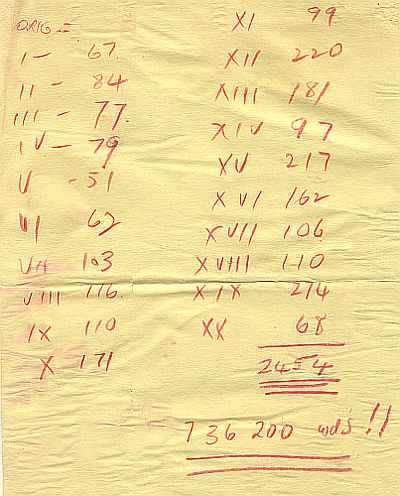 ORIG =
I - 67.
II - 84
III - 77.
IV - 79
V - 51
VI 62
VII 103
VIII 116.
IX 110
X 171
XI 99
XII 220
XIII 181
XIV 97
XV 217
XVI 162
XVII 106
XVIII 110
XIX 274
XX 68
2454
736 200 wds !!